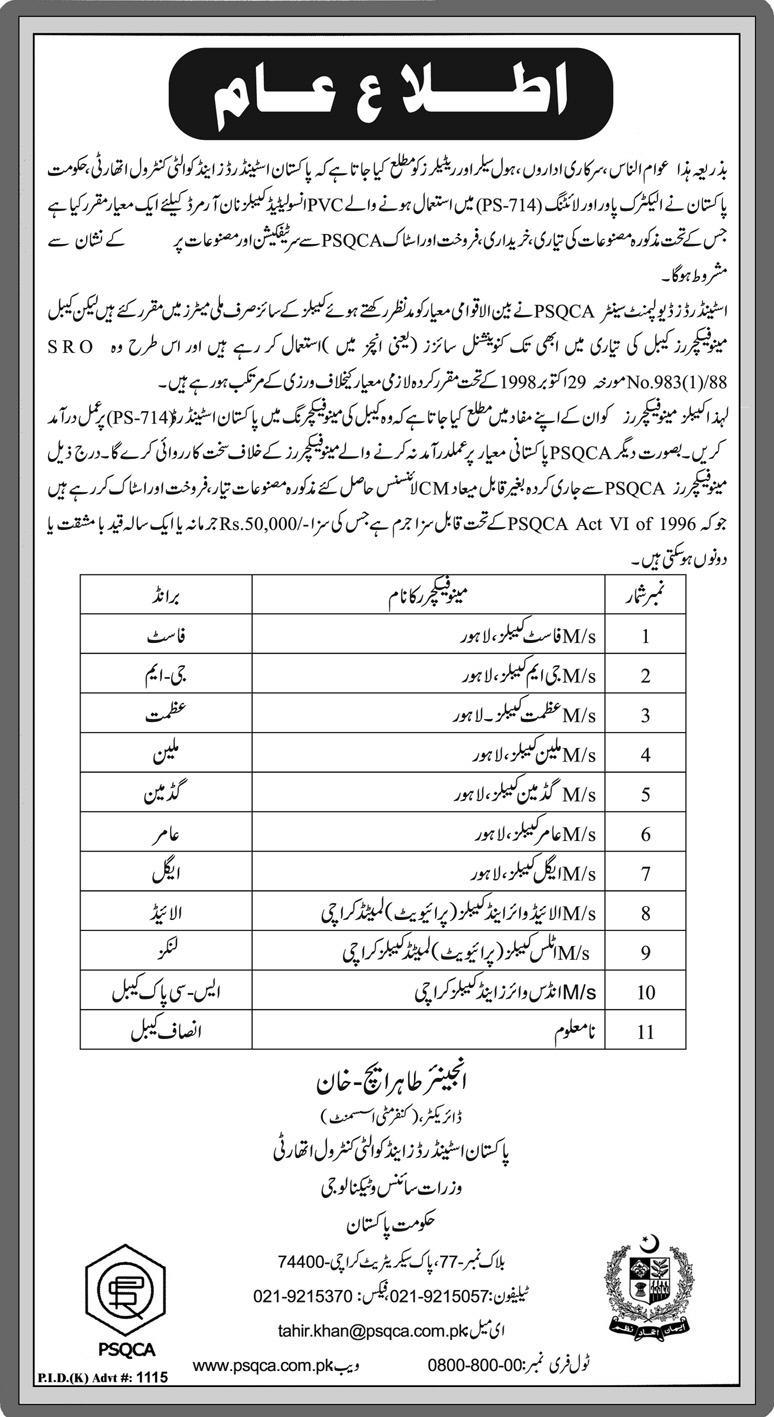 اطلاع عام
بذریعہ ہذا عوام الناس، سرکاری اداروں، ہول سیلر اور ریٹیلرز کو مطلع کیا جاتا ہے کہ پاکستان اسٹینڈرڈز اینڈ کوالٹی کنٹرول اتھارٹی، حکومت
پاکستان نے الیکٹرک پاور اور لائٹنگ (PS-714) میں استعمال ہونے والے PVC انسولیٹیڈ کیبلز نان آرمرڈ کیلئے ایک معیار مقرر کیا ہے
جس کے تحت مذکورہ مصنوعات کی تیاری، خریداری، فروخت اور اسٹاک PSQCA سے سرٹیفکیشن اور مصنوعات پر کے نشان سے
مشروط ہوگا۔
اسٹینڈرڈز ڈیولپمنٹ سینٹر PSQCA نے بین الاقوامی معیار کو مدنظر رکھتے ہوئے کیبلز کے سائز صرف ملی میٹرز میں مقرر کئے ہیں لیکن کیبل
مینوفیکچررز کیبل کی تیاری میں ابھی تک کنوینشنل سائزز (یعنی انچز میں) استعمال کر رہے ہیں اور اس طرح وہ SRO
No.983(1)/88 مورخہ 29 اکتوبر 1998 کے تحت مقرر کردہ لازمی معیار کیخلاف ورزی کے مرتکب ہو رہے ہیں۔
لہذا کیبلز مینوفیکچررز کو ان کے اپنے مفاد میں مطلع کیا جاتا ہے کہ وہ کیبل کی مینوفیکچرنگ میں پاکستان اسٹینڈرڈ (PS-714) پر عمل درآمد
کریں۔ بصورت دیگر PSQCA پاکستانی معیار پر عملدرآمد نہ کرنے والے مینوفیکچررز کے خلاف سخت کارروائی کرے گا۔ درج ذیل
مینوفیکچررز PSQCA سے جاری کردہ بغیر قابل میعاد CM لائسنس حاصل کئے مذکورہ مصنوعات تیار، فروخت اور اسٹاک کر رہے ہیں
جو کہ PSQCA Act VI of 1996 کے تحت قابل سزا جرم ہے جس کی سزا Rs.50,000/- جرمانہ یا ایک سالہ قید با مشقت یا
دونوں ہو سکتی ہیں۔
نمبر شمار مینوفیکچرر کا نام برانڈ
1 M/s فاسٹ کیبلز، لاہور فاسٹ
2 M/s جی ایم کیبلز، لاہور جی-ایم
3 M/s عظمت کیبلز۔ لاہور عظمت
4 M/s ملین کیبلز، لاہور ملین
5 M/s گڈ مین کیبلز، لاہور گڈ مین
6 M/s عامر کیبلز، لاہور عامر
7 M/s ایگل کیبلز، لاہور ایگل
8 M/s الائیڈ وائر اینڈ کیبلز (پرائیویٹ) لمیٹڈ کراچی الائیڈ
9 M/s اٹلس کیبلز (پرائیویٹ) لمیٹڈ کیبلز کراچی لنکز
10 M/s انڈس وائرز اینڈ کیبلز کراچی ایس-سی پاک کیبل
11 نامعلوم انصاف کیبل
انجینئر طاہر ایچ-خان
ڈائریکٹر، (کنفرمٹی اسسمنٹ)
پاکستان اسٹینڈرڈز اینڈ کوالٹی کنٹرول اتھارٹی
وزرات سائنس و ٹیکنالوجی
حکومت پاکستان
بلاک نمبر-77، پاک سیکریٹریٹ کراچی-74400
ٹیلیفون: 021-9215057 فیکس: 021-9215370
ای میل: tahir.khan@psqca.com.pk
ٹول فری نمبر: 0800-800-00 ویب www.psqca.com.pk
PSQCA
ایمان اتحاد نظم
P.I.D.(K) Advt #: 1115